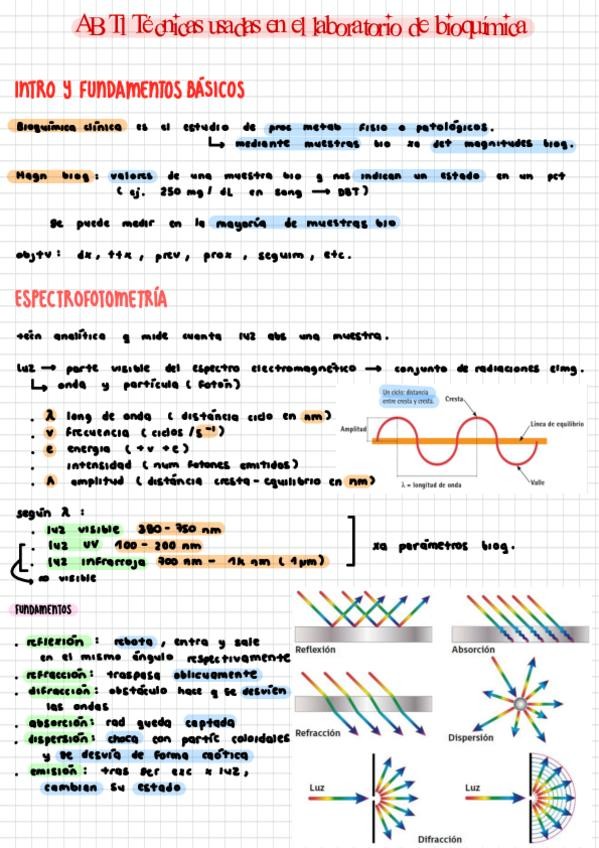 AB T1 Técnicas usadas en el laboratorio de bioquímica
INTRO Y FUNDAMENTOS BÁSICOS
Bioquímica clínica es el estudio de proc metab fisio o patológicos.
↳ mediante muestras bio xa det magnitudes bioq.
Magn bioq: valores de una muestra bio q nos indican un estado en un pct
( ej. 250 mg / dL en sang → DBT)
se puede medir en la mayoría de muestras bio
objtv: dx, ttx, prev, prox, seguim, etc.
ESPECTROFOTOMETRÍA
técn analítica q mide cuanta luz abs una muestra.
luz → parte visible del espectro electromagnético → conjunto de radiaciones elmg.
↳ onda y partícula ( fotón)
· λ long de onda ( distáncia ciclo en nm)
· v frecuencia ( ciclos /s⁻¹)
· e energía ( +v +e)
· intensidad ( num fotones emitidos)
· A amplitud ( distáncia cresta - equilibrio en nm)
Un ciclo: distancia
entre cresta y cresta.
Cresta
Amplitud
Línea de equilibrio
λ = longitud de onda
Valle
según λ :
· luz visible 380 - 750 nm
· luz UV 100 - 200 nm
· luz infrarroja 700 nm - 1k nm ( 1 μm)
xa parámetros bioq.
no visible
FUNDAMENTOS
· reflexión: rebota, entra y sale
en el mismo ángulo respectivamente
· refracción: traspasa oblicuamente
· difracción: obstáculo hace q se desvíen
las ondas
· absorción: rad queda captada
· dispersión: choca con partíc coloidales
y se desvía de forma caótica
· emisión: tras ser exc x luz,
cambian su estado
Reflexión
Absorción
Refracción
Dispersión
Luz
Luz
Difracción